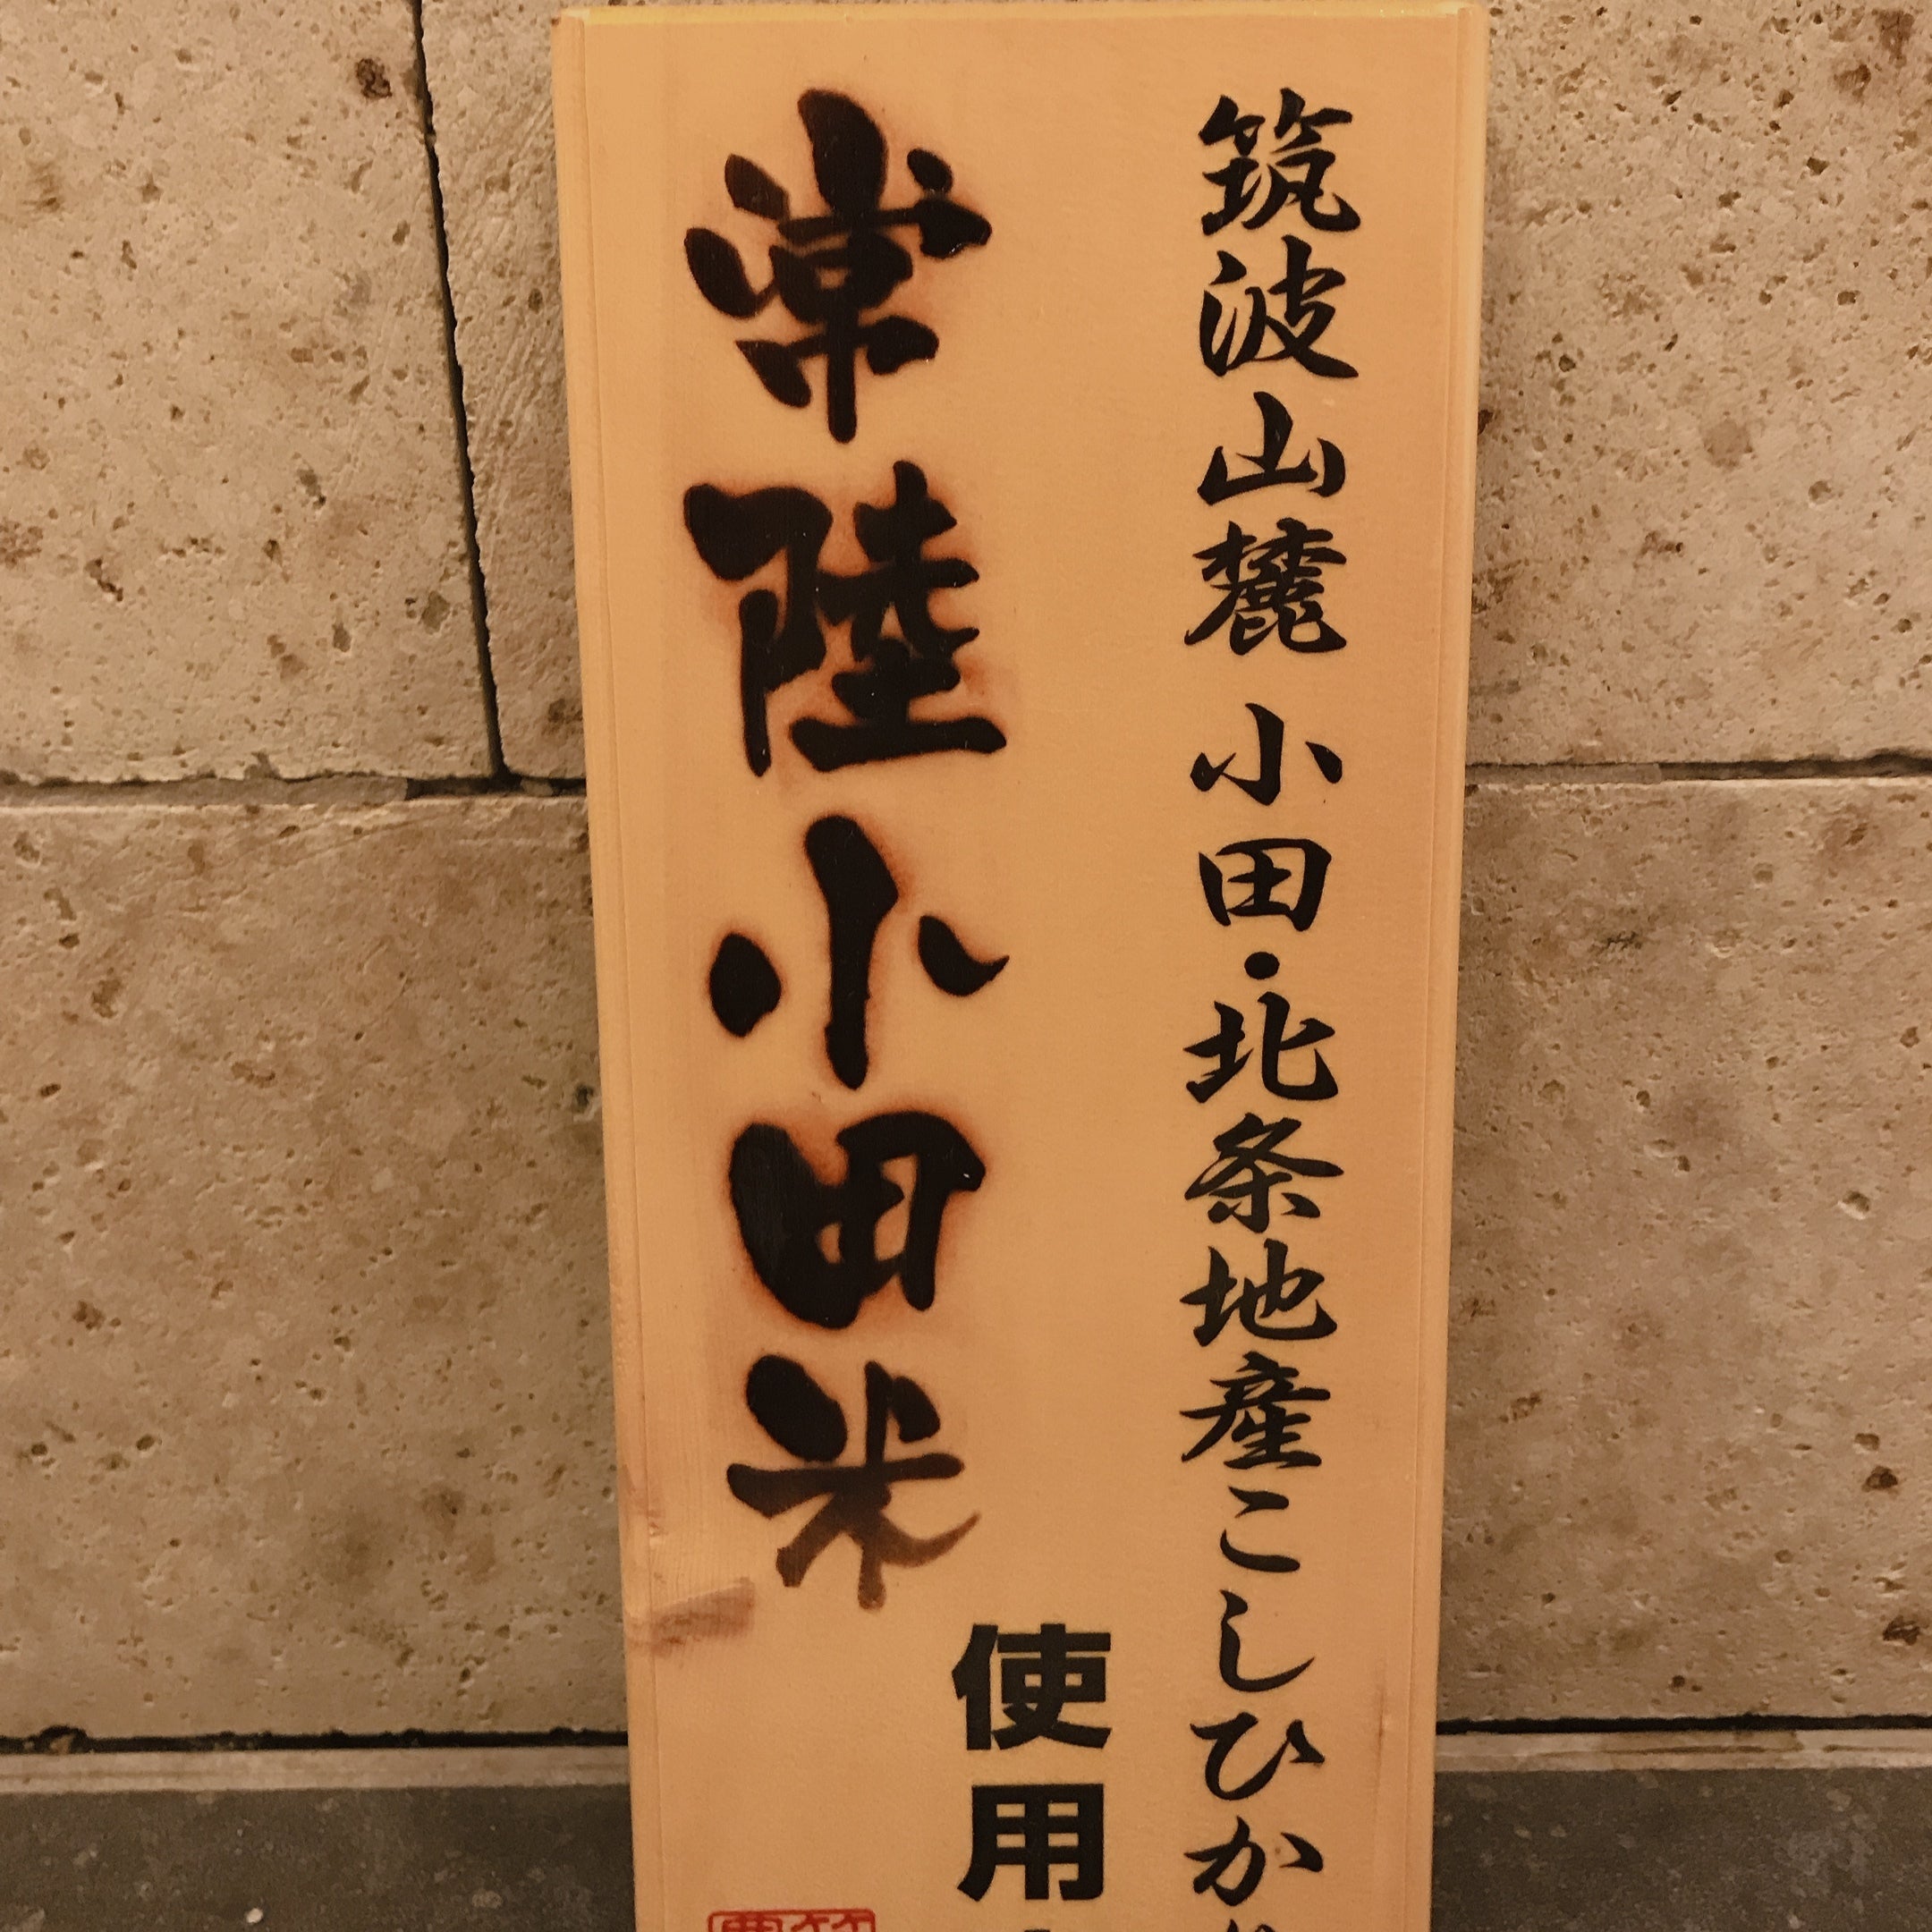 筑波山麓 小田・北条地産こしひか
常陸小田米
使用